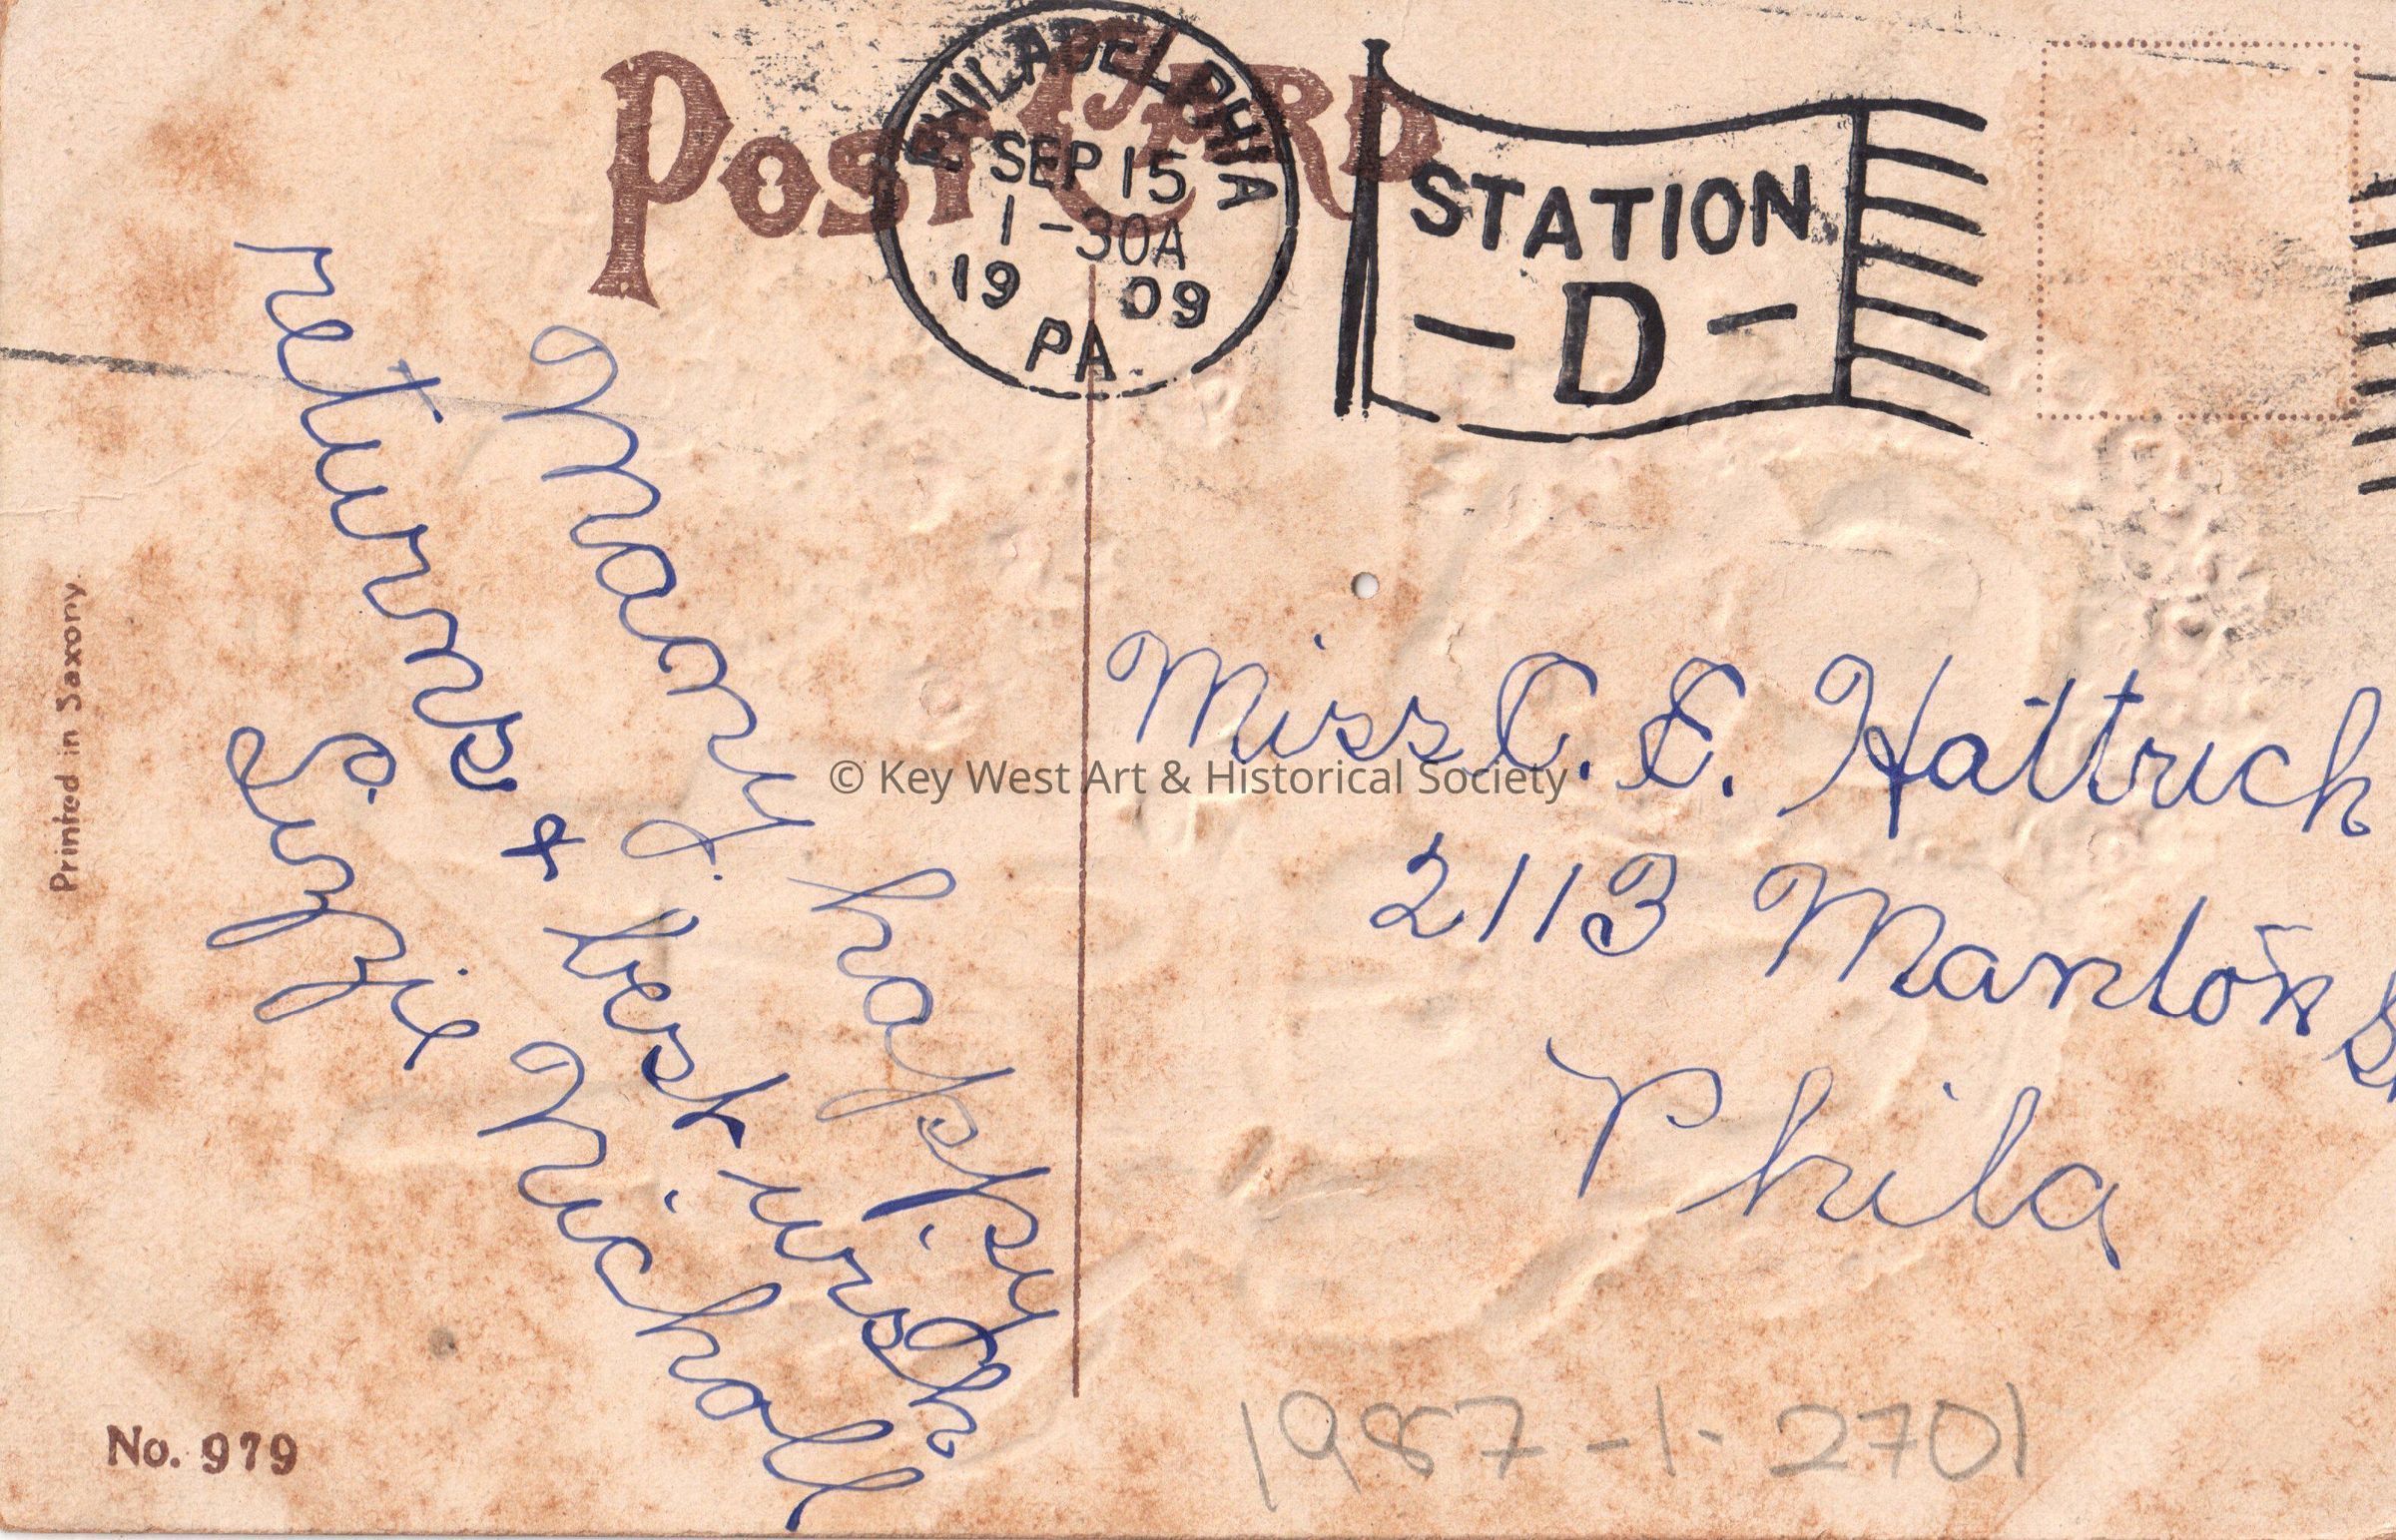 POST CARD
PHILADELPHIA
SEP 15
1-30A
19 09
PA.
STATION
- D -
Many happy
returns & best wish
Lizzie Nichall
Miss C. E. Hattrich
2113 Manton St
Phila
Printed in Saxony.
No. 979
1987-1-2701
© Key West Art & Historical Society